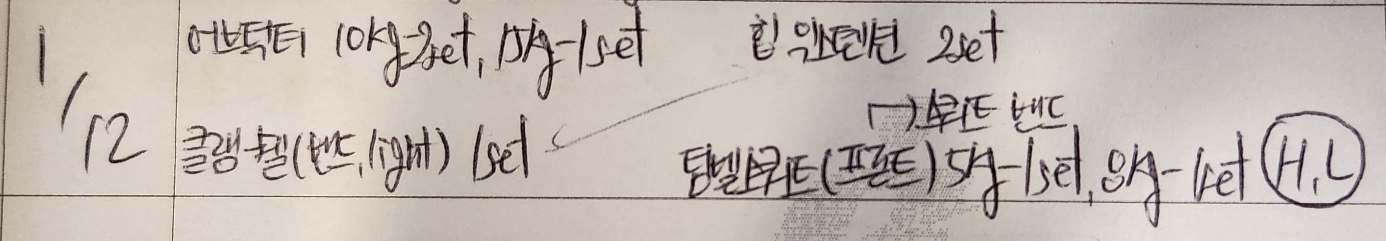 1/12
어브덕터 10kg-2set, 15kg-1set 힙 익스텐션 2set
클램쉘(밴드, light) 1set
→스쿼트 밴드
덤벨스쿼트(프론트) 5kg-1set, 8kg-1set (H, L)